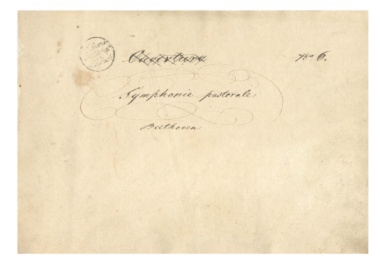 Ouverture No 6.
Symphonie pastorale
Beethoven